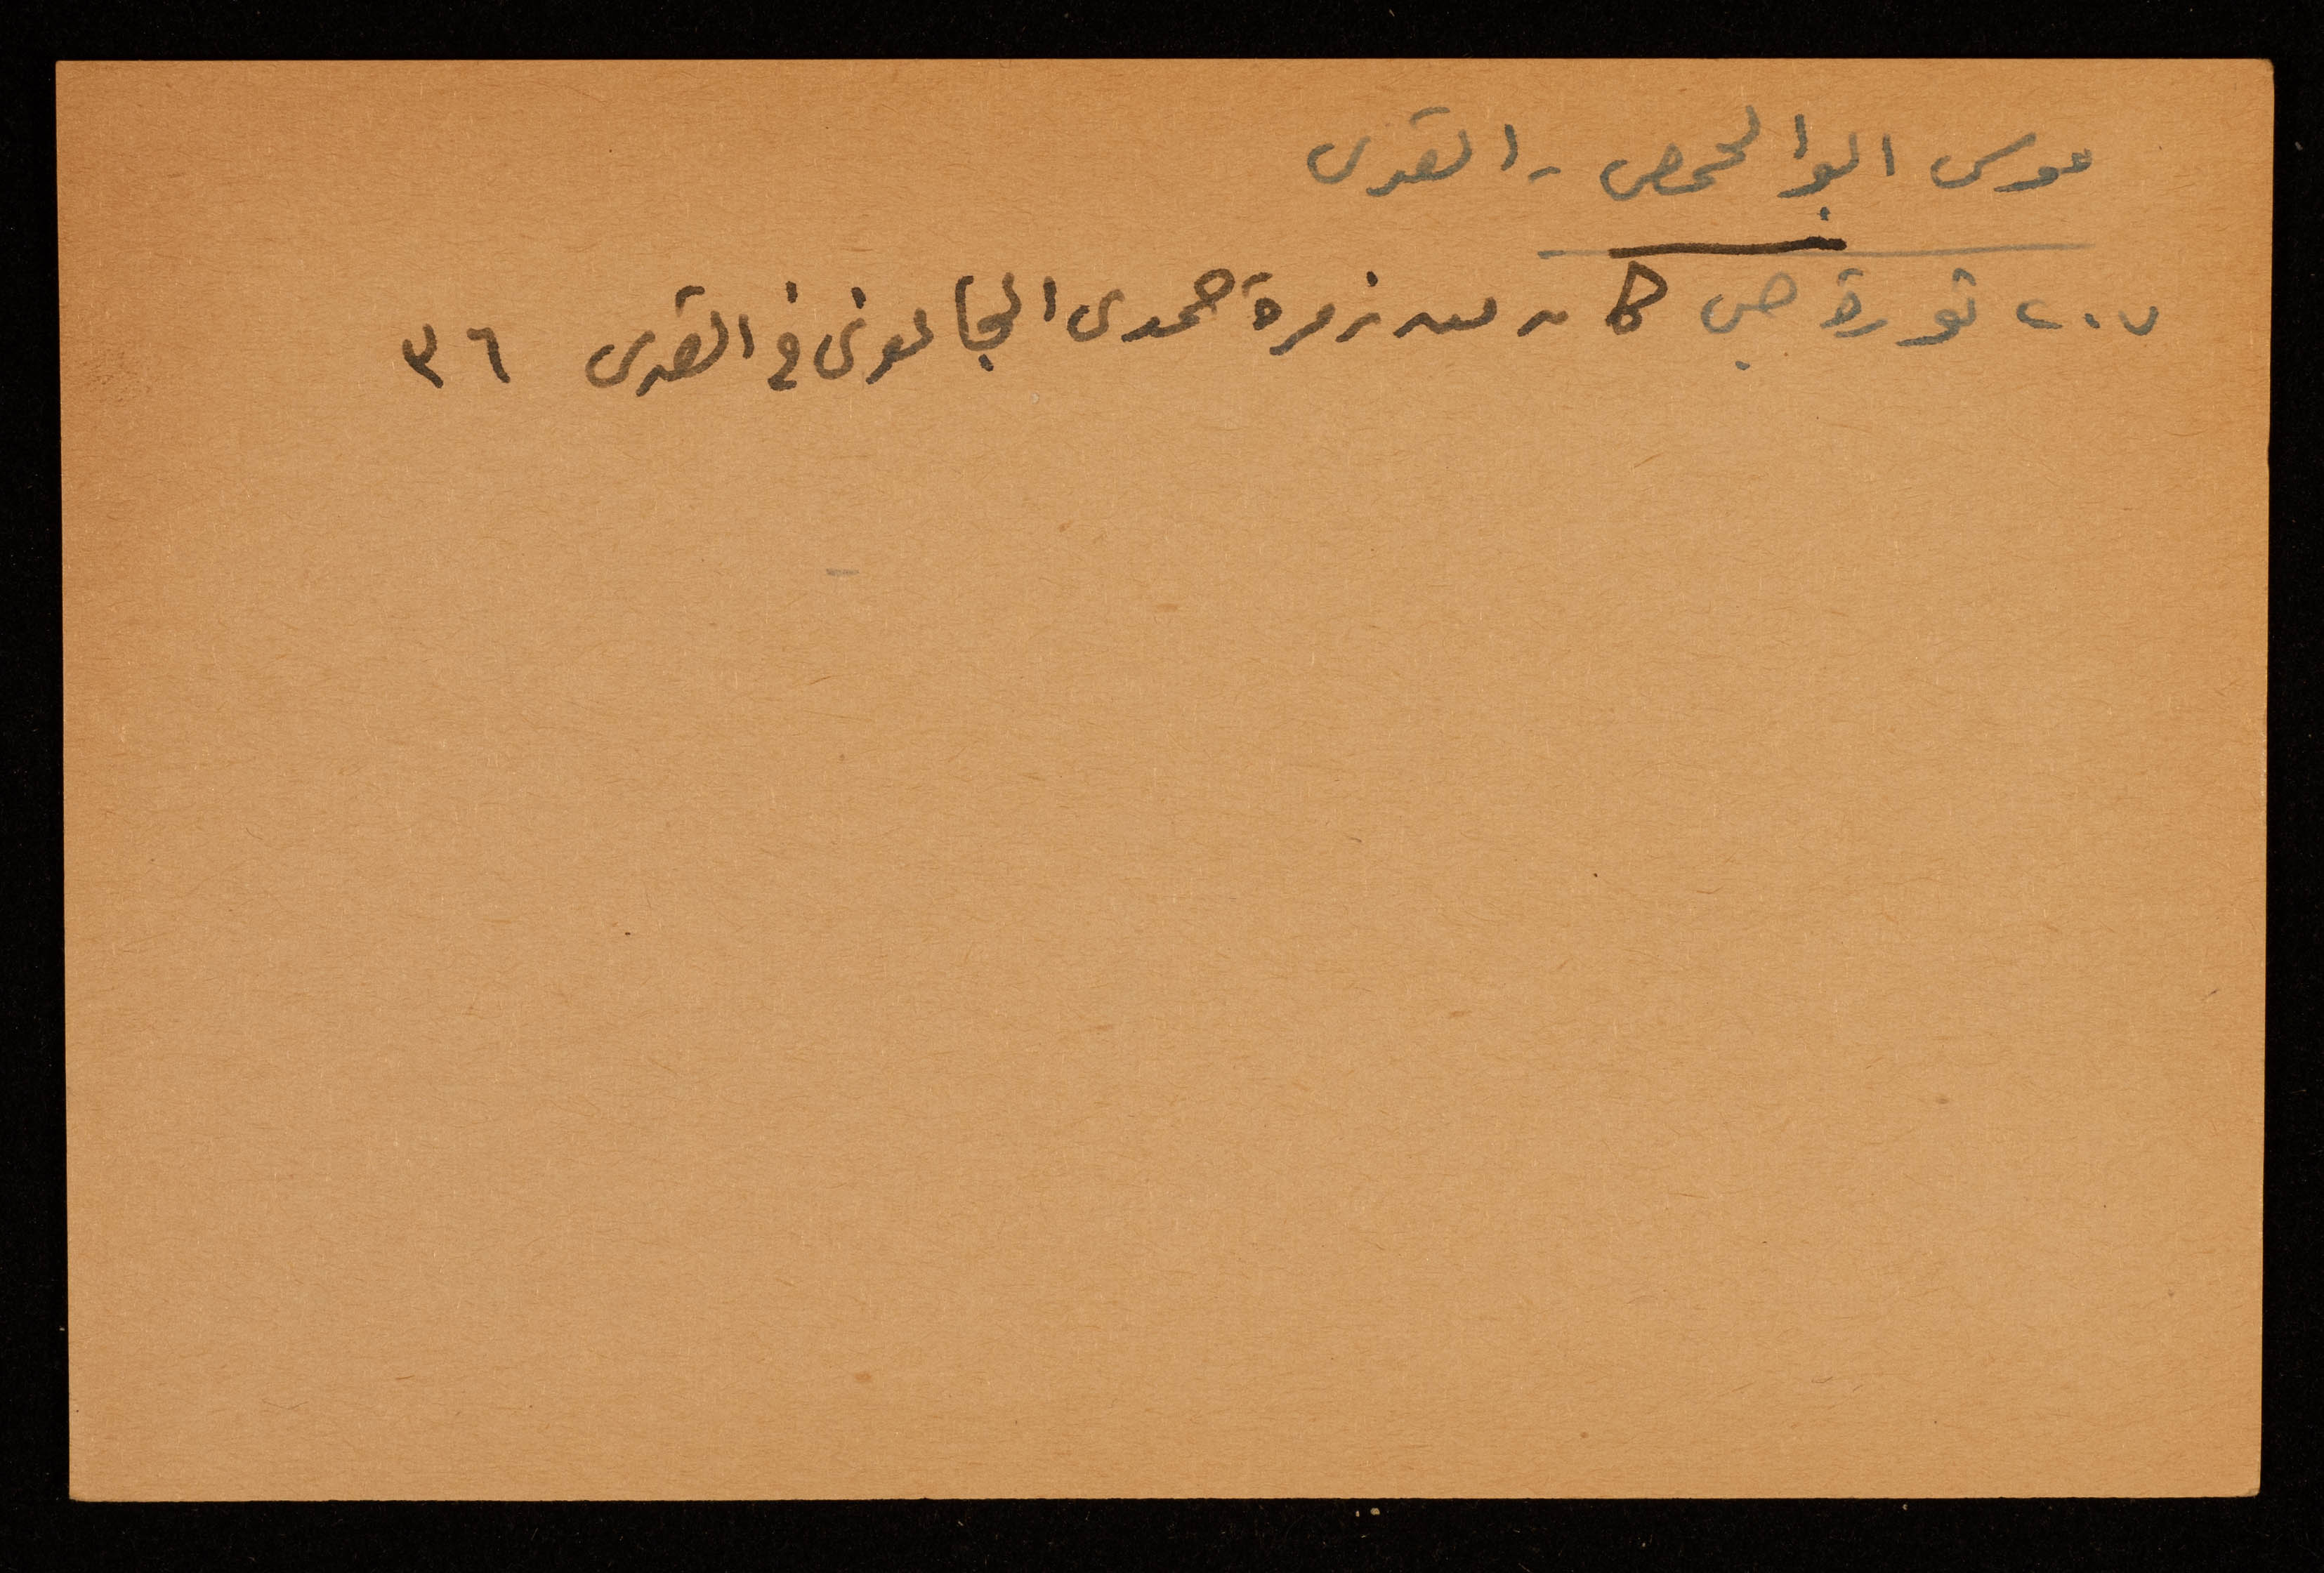 موسى ابو الحمص - القدس
٢٠٧ ثورة صبحي كان من زمرة حمدى الجاعونى في القدس ٣٦